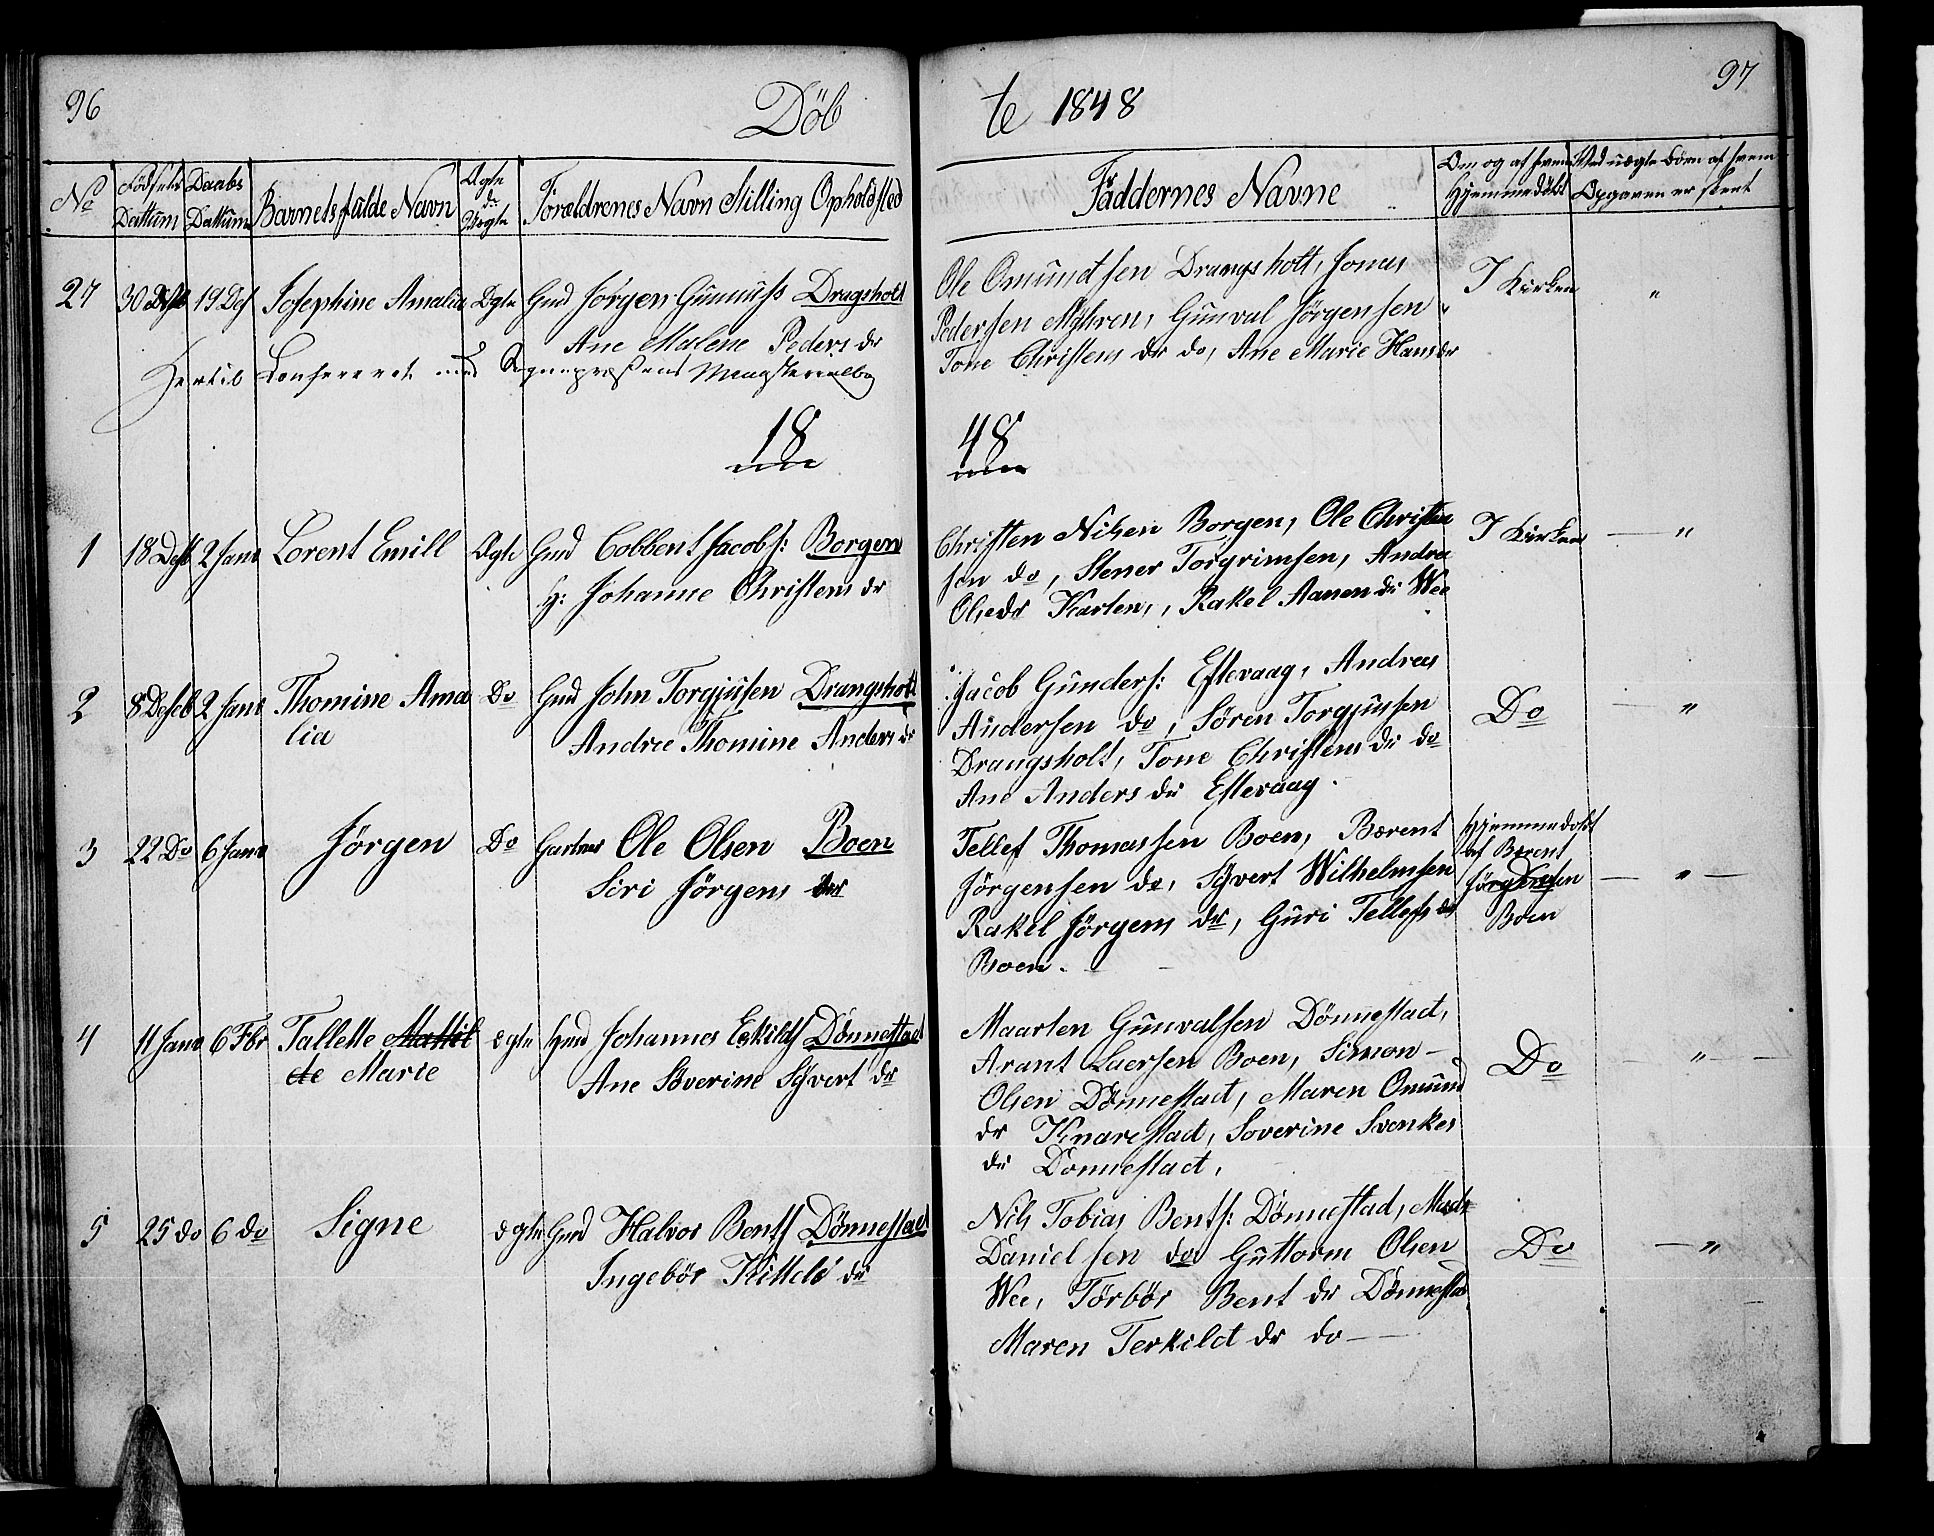 96
Döb
te 1848
97
No
Födsels Dattum
Daabs Dattum
Barnets fulde Navn
Ægte dr Uægte
Forældrenes Navn Stilling Opholdsted
Faddernes Navne
Om og af hvem Hjemmedöbt
Ved uægte Börn af hvem Opgaven er skeet
27 30 19 Josephine Amalia Ægte Gmd Jörgen Gunnufs Dragsholt
Ane Malene Peders dr
Hertil Confereret med
Ole Omundtsen Drangsholt, Jonas
Pedersen Myhren, Gunval Jörgensen "
Tone Christens dr do, Ane Marie Hans dr
I Kirken "
18
48
1 18 Desb 2 Janr Lorent Emill Ægte Gmd Cobbent Jacobs: Borgen
H: Johanne Christens dr
Christen Nilsen Borgen, Ole Christen
sen do, Stener Torgrimsen, Andrea
Olsedr Karten, Rakel Aanen dr Wee
I Kirken "
2 8 Deseb 2 Janr Thomine Ama
lia
Do Gmd John Torgjusen Drangsholt
Andree Thomine Anders dr
Jacob Gunders: Eftevaag, Andreas
Andersen do, Sören Torgjussen
Drangsholt, Tone Christens dr do
Ane Anders dr Eftevaag.
Do "
3 22 Do 6 Janr Jörgen Do Gartner Ole Olsen Boen
Siri Jörgens dr
Tellef Thomassen Boen, Bærent
Jörgensen do, Syvert Wilhelmsen
Rakel Jörgens dr, Guri Tellefs dr
Boen.
Hjemmedöbt
af Bærent
Jörgensen
Boen
"
4 11 Janr 6 Fbr Tallette Mattil
de Marie
egte Gmd Johannes Eskilds Dönnestad
Ane Söverine Syvert dr
Maarten Gunvalsen Dönnestad,
Arant Laersen Boen, Simon
Olsen Dönnestad, Maren Omund
dr Knarestad, Soverine Svenkes
dr Donnestad,
Do "
5 25 do 6 do Signe egte Gmd Halvor Bents Dönnestad
Ingebör Kittels dr
Nils Tobias Bents: Dönnestad, Mads
Danielsen do Guttorm Olsen
Wee, Törbör Bent dr Dönnestad
Maren Terkild dr do
Do "